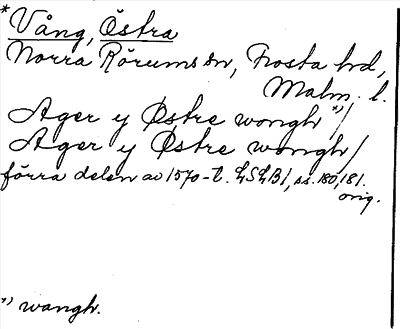 * Vång, Östra
Norra Rörums sn, Frosta hd,
Malm. l.
Ager y Østre wongh *)/
Ager y Østre wongh/
förra delen av 1570-t. LSLB1, ss. 180, 181.
orig.
*) wangh.